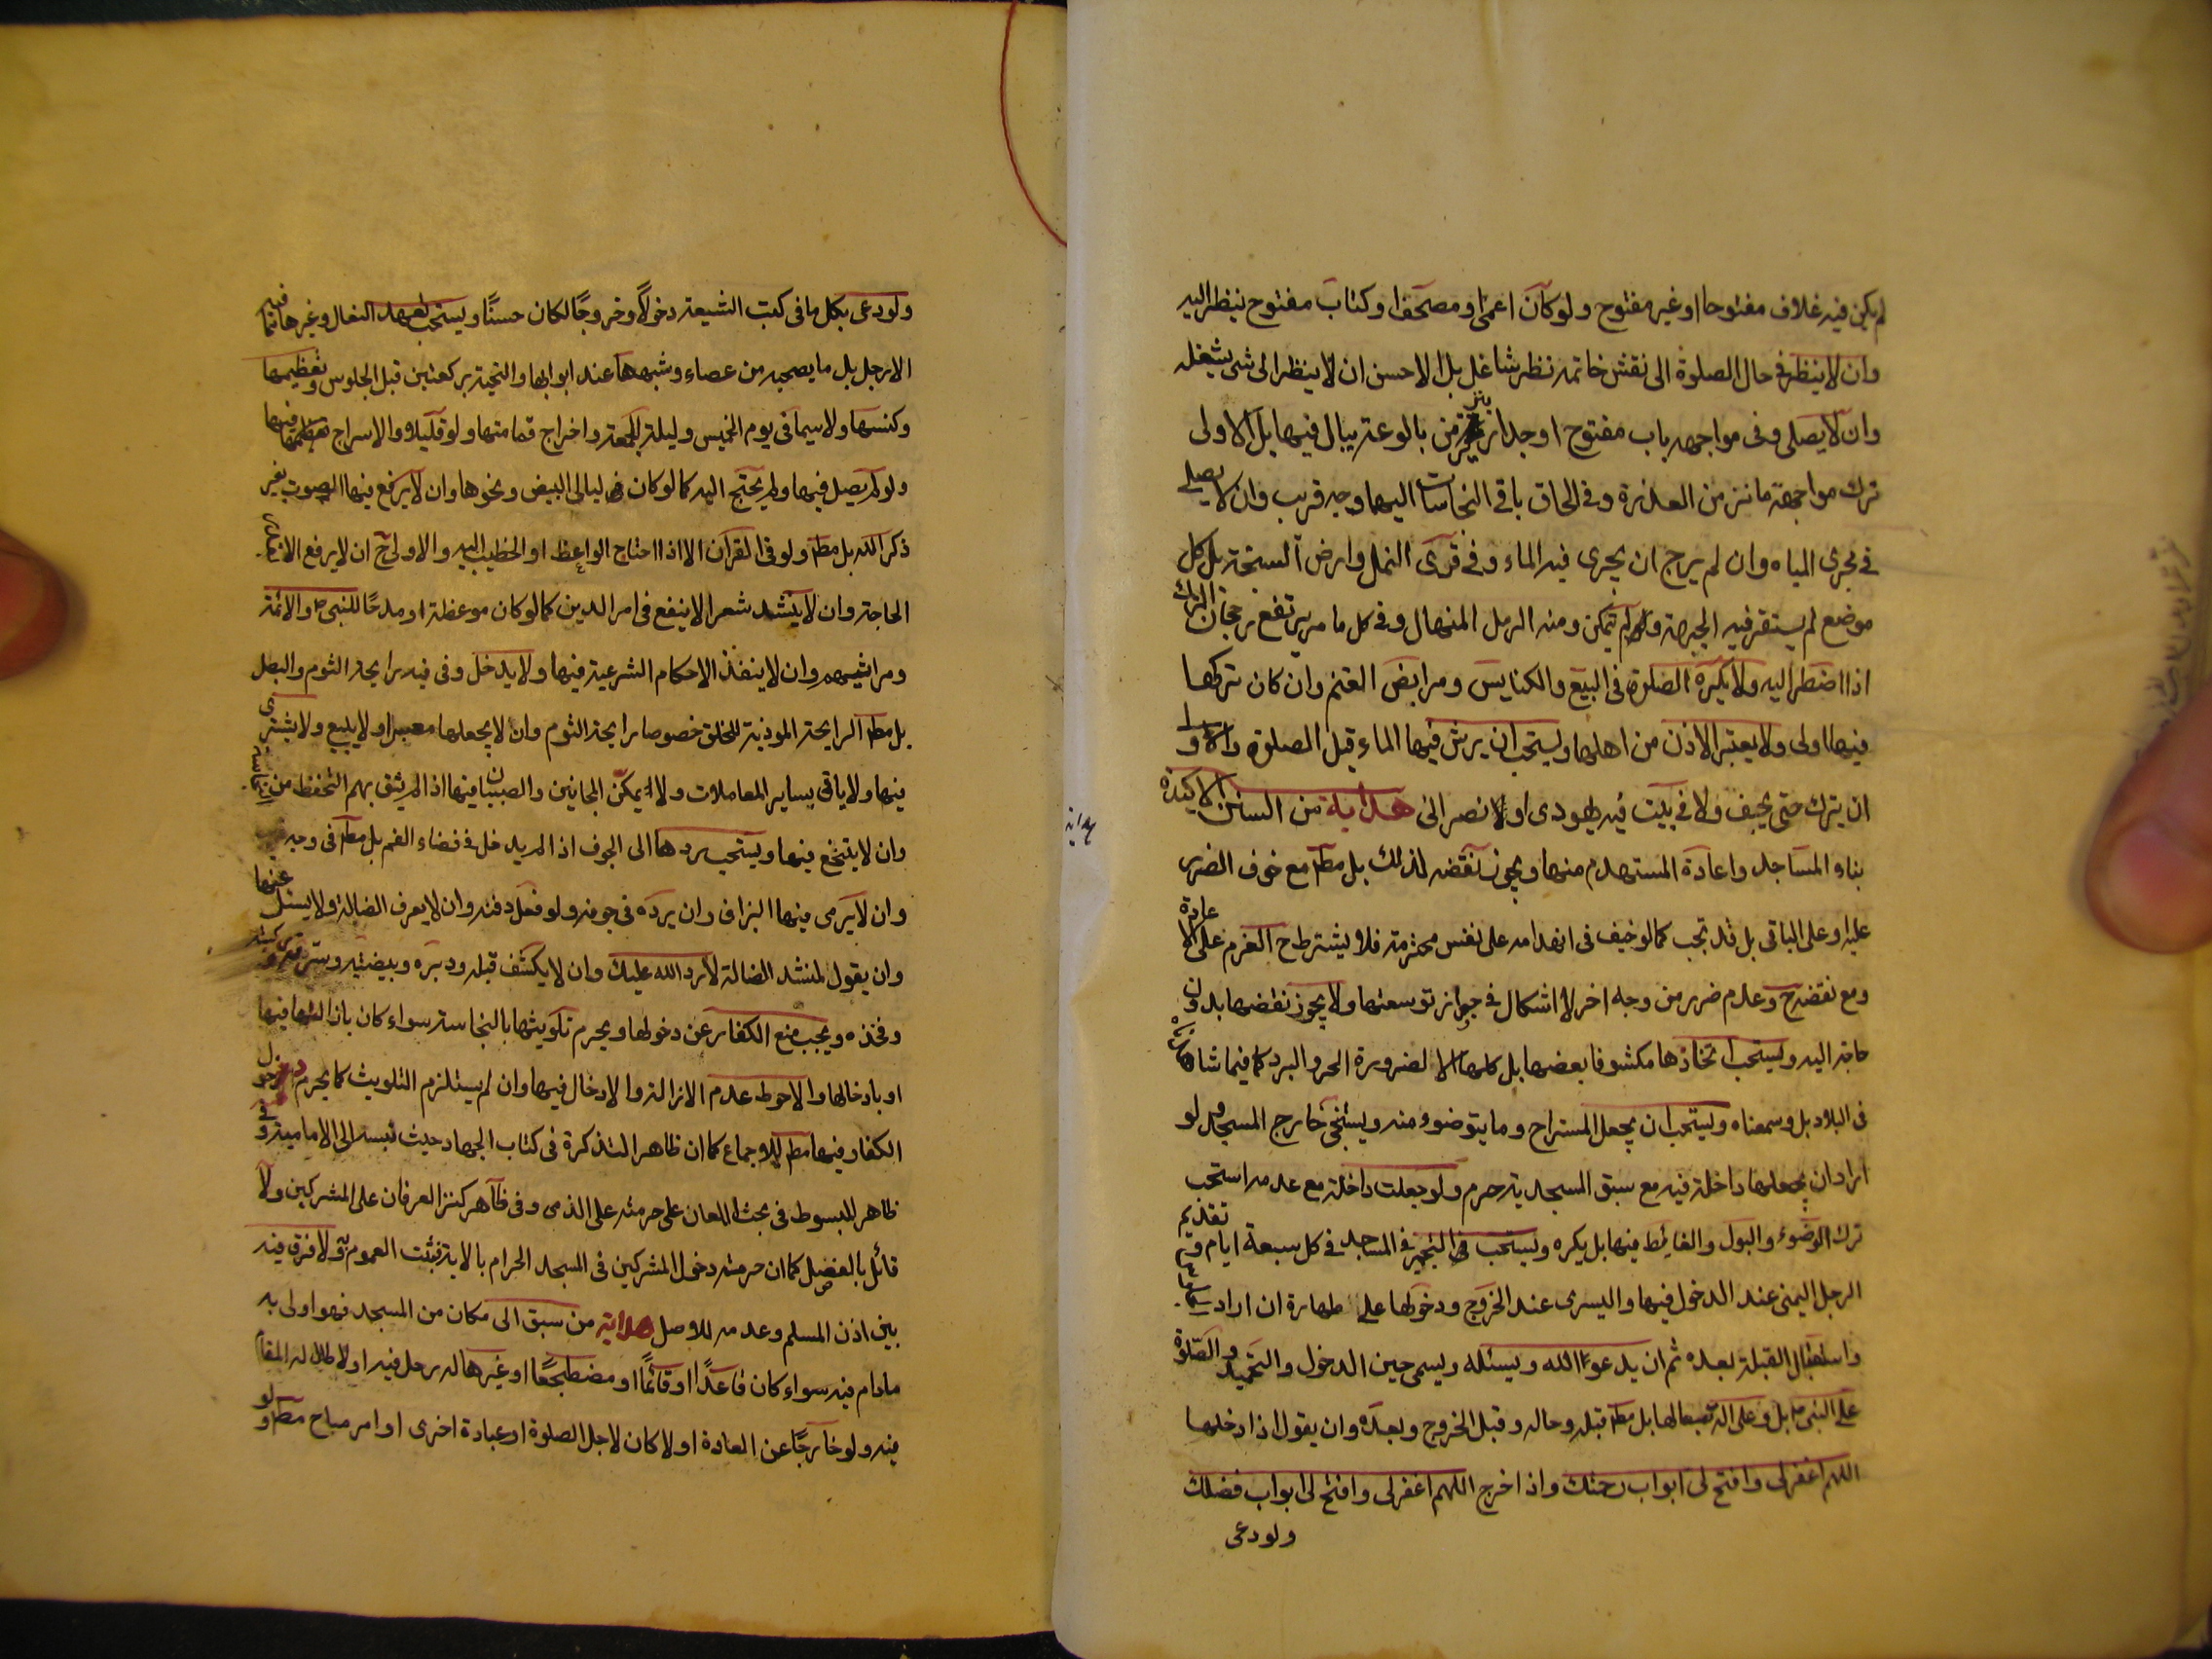 لم يكن فيه غلاف مفتوحا او غير مفتوح ولو كان اعمى او مصحفا او كتاب مفتوح ينظر اليه
وان لا ينظر في حال الصلوة الى نقش خاتمه نظر شاغل بل الاحسن ان لا ينظر الى شئ يشغله
وان لا يصلى وفى مواجهه باب مفتوح او جدار ينز من بالوعة يبال فيها بل الاولى
ترك مواجهة ما نز من العذرة وفى الحاق باقى النجاسات اليهما وجه قريب وان لا يصلى
فى مجرى المياه وان لم يرج ان يجرى فيه الماء وفى قرى النمل وارض السبخة بل كل
موضع لم يستقر فيه الجبهة ولو لم تتمكن ومنه الرمل المنهال وفى كل ما مر يرتفع رجحان الترك
اذا اضطر اليه ولا يكره الصلوة فى البيع والكنايس ومرابض الغنم وان كان تركها
فيها اولى ولا يعتبر الاذن من اهلها ويستحب ان يرش فيها الماء قبل الصلوة والاولى
ان يترك حتى يجف ولا فى بيت فيه يهودى او لا نصرانى هداية من السنن الاكيدة
بناء المساجد واعادة المستهدم منها ويجوز نقضه لذلك بل مط مع خوف الضرر
عليه او على الباقى بل قد تجب كما لو خيف فى انهدامه على نفس محترمة فلا يشترط ح العزم على الاعادة
ومع نقضه ح وعدم ضرر من وجه اخر لا اشكال فى جواز توسعتها ولا يجوز نقضها بدون
حاجة اليه ويستحب اتخاذها مكشوفا بعضها بل كلها الا لضرورة الحر والبرد كما فيما شاهدناه
فى البلاد بل وسمعناه ويستحب ان يجعل المستراح وما يتوضوء منه ويستنجى خارج المسجد ولو
اراد ان يجعلها داخلة فيه مع سبق المسجدية حرم ولو جعلت داخلة مع عدمه استحب
ترك الوضوء والبول والغايط فيها بل يكره ويستحب التجمير فى المساجد فى كل سبعة ايام وتقديم
الرجل اليمنى عند الدخول فيها واليسرى عند الخروج ودخولها على طهارة ان اراد
واستقبال القبلة بعده ثم ان يدعو الله ويسئله ويسمى حين الدخول والتحميد والصلوة
على النبى ص بل وعلى اله تبعا لها بل مط قبله وحاله وقبل الخروج وبعده وان يقول اذا دخلها
اللهم اغفر لى وافتح لى ابواب رحمتك واذا خرج اللهم اغفر لى وافتح لى ابواب فضلك
ولو دعى
هداية
ولو دعى بكل ما فى كتب الشيعة دخولا وخروجا لكان حسنا ويستحب تعهد النعال وغيرها مما فى
الارجل بل ما يصحبه من عصاء وشبهها عند ابوابها والتحية بركعتين قبل الجلوس وتعظيمها
وكنسها ولا سيما فى يوم الخميس وليلة الجمعة واخراج قمامتها ولو قليلا والاسراج فيها
ولو لم يصل فيها ولم يحتج اليه كما لو كان ليالى البيض ونحوها وان لا يرفع فيها الصوت بغير
ذكر الله بل مط ولو فى القران الا اذا احتاج الواعظ او الخطيب اليه والاولى ح ان لا يرفع الا بقدر
الحاجة وان لا ينشد شعرا لا ينفع فى امر الدين كما لو كان موعظة او مدحا للنبى ص والائمة
ومراثيهم وان لا ينفذ الاحكام الشرعية فيها ولا يدخل وفى فيه رايحة الثوم والبصل
بل مط الرايحة الموذية للخلق خصوصا رايحة الثوم وان لا يجعلها معبرا ولا يبيع ولا يشترى
فيها ولا ياتى بساير المعاملات ولا يمكن المجانين والصبيان فيها اذا لم يثق بهم التحفظ من
وان لا يتنخع فيها ويستحب ردها الى الجوف اذا لم يدخل فى فضاء الفم بل مط فى وجه
وان لا يرمى فيها البزاق وان يرده فى جوفه ولو فعل دفنه وان لا يعرف الضالة ولا يسئل عنها
وان يقول لمنشد الضالة لا رد الله عليك وان لا يكشف قبله ودبره وبيضتيه وسرته وركبته
وفخذه ويجب منع الكفار عن دخولها ويحرم تلويثها بالنجاسة سواء كان بازالتها فيها
او بادخالها والاحوط عدم الازالة والادخال فيها وان لم يستلزم التلويث كما يحرم دخول
الكفار فيها مط للاجماع كما ان ظاهر التذكرة فى كتاب الجهاد حيث نسبه الى الامامية وفى
ظاهر المبسوط فى بحث اللعان على حرمته على الذمى وفى ظاهر كنز العرفان على المشركين ولا
قائل بالفصل كما ان حرمته دخول المشركين فى المسجد الحرام بالاية فيثبت العموم ولا فرق فيه
بين اذن المسلم وعدمه للاصل هداية من سبق الى مكان من المسجد فهو اولى به
مادام فيه سواء كان قاعدا او قائما او مضطجعا او غيرها له رحل فيه او لا طال له المقام
فيه ولو خارجا عن العادة او لا كان لاجل الصلوة او عبادة اخرى او امر مباح مط ولو